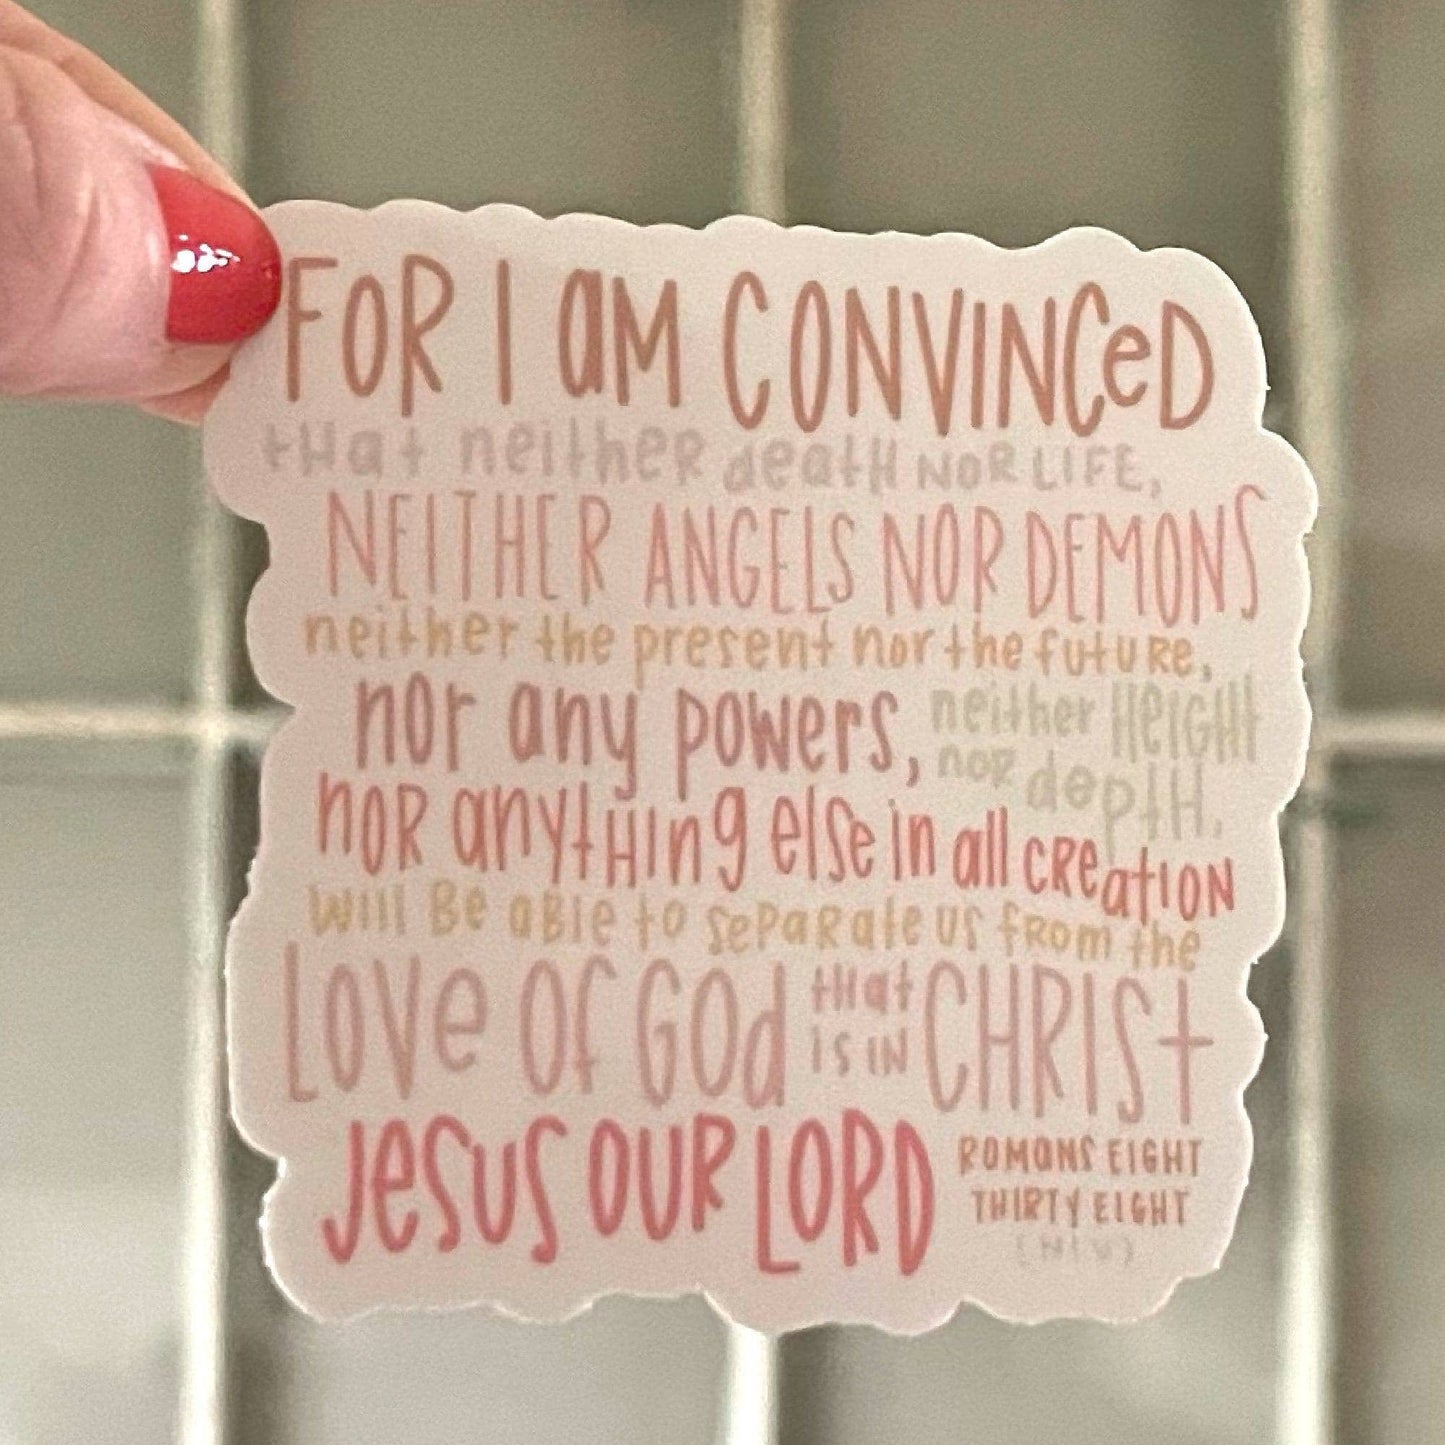 FOR I aM CONVINCeD
tHat neitheR deatH NOR LIFE,
NEITHER ANGELS NOR DEMONS
neither the present nor the futuRe,
nor any powers, neither HeIGHt
nor deptH,
noR anytHing else in all CREatION
will Be aBle to sePaRate us fRom the
Love Of GOd that is IN CHRISt
JeSuS OUR LORD
ROMaNS EIGHT
THIRTY EIGHT
(NIV)